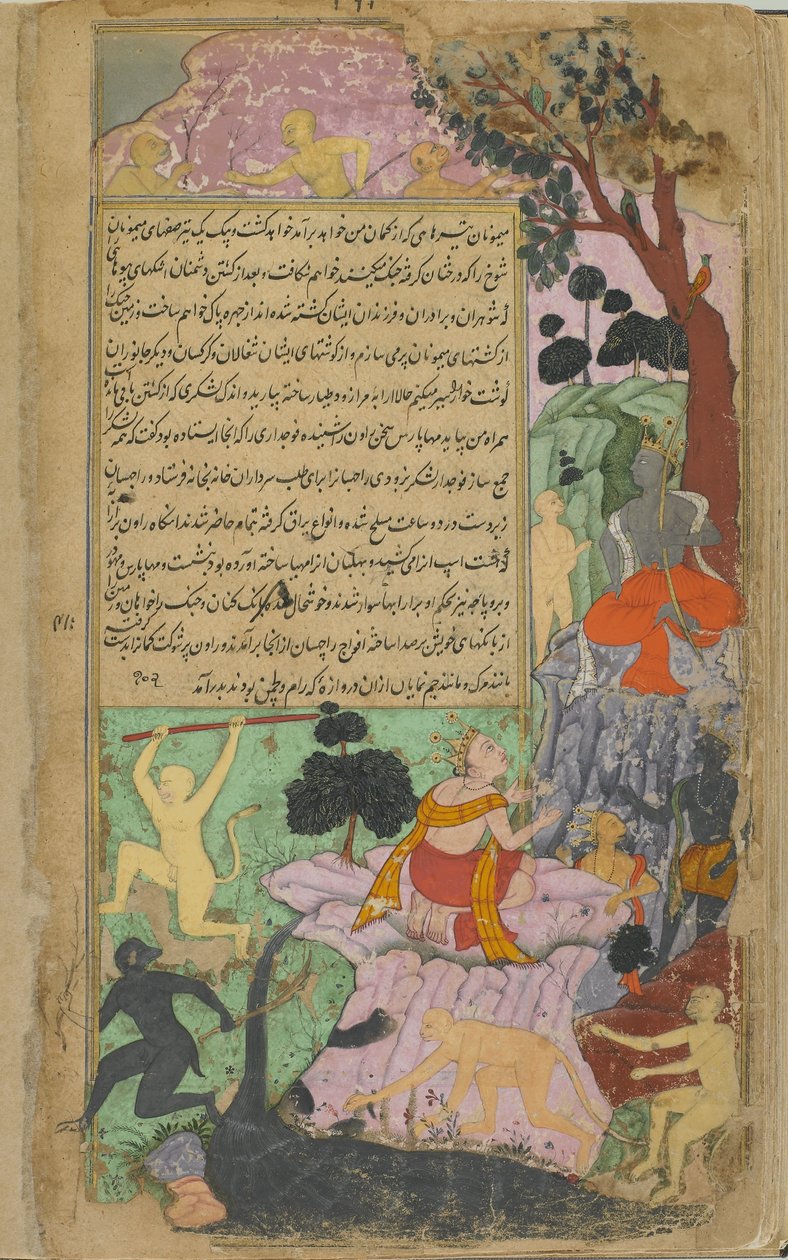 میمونان تیرهای که از کمان من خواهد برآمد خواهد گشت و یک یک تیر صفهای میمونان
شوخ را که درختان گرفته جنک میکنند خواهم شکافت و بعد از کشتن دشمنان اشکهای بیوهای
که شوهران و برادران و فرزندان ایشان کشته شده اند از چهره پاک خواهم ساخت و زمین
از کشتهای میمونان پر می سازم و از کوشتهای ایشان شغالان و کرکسان و دیکر جانوران
کوشت خوار را سیر میکنم حالا ارابهٔ مرا زود طیار ساخته بیارید و اندک لشکری که از کشتن باقی مانده
همراه من بیاید مهاپارس سخن راون را شنیده فوجداری را که انجا ایستاده بود کفت که همه
جمع ساز فوجدار لشکر بزودی راچسانرا برای طلب سرداران خانه بخانه فرستاد و راچسان
زبردست در دو ساعت مسلح شده و انواع یراق کرفته تمام حاضر شدند انکاه راون بر ارابه
که هشت اسپ انرا می کشید و بهلبان انرا مهیا ساخته آورده بود نشست و مهاپارس و مهودر
و بروپاچه نیز بحکم او بر ارابها سوار شدند و خوشحال شده بانک کنان و جنک را خواهان
از بانکهای خویش پر صدا ساخته افواج راچسان از انجا برآمدند و راون پر شوکت کمانرا بدست
مانند مرک و مانند جم نمایان از ان دروازه که رام و لچمن بودند بدر آمد